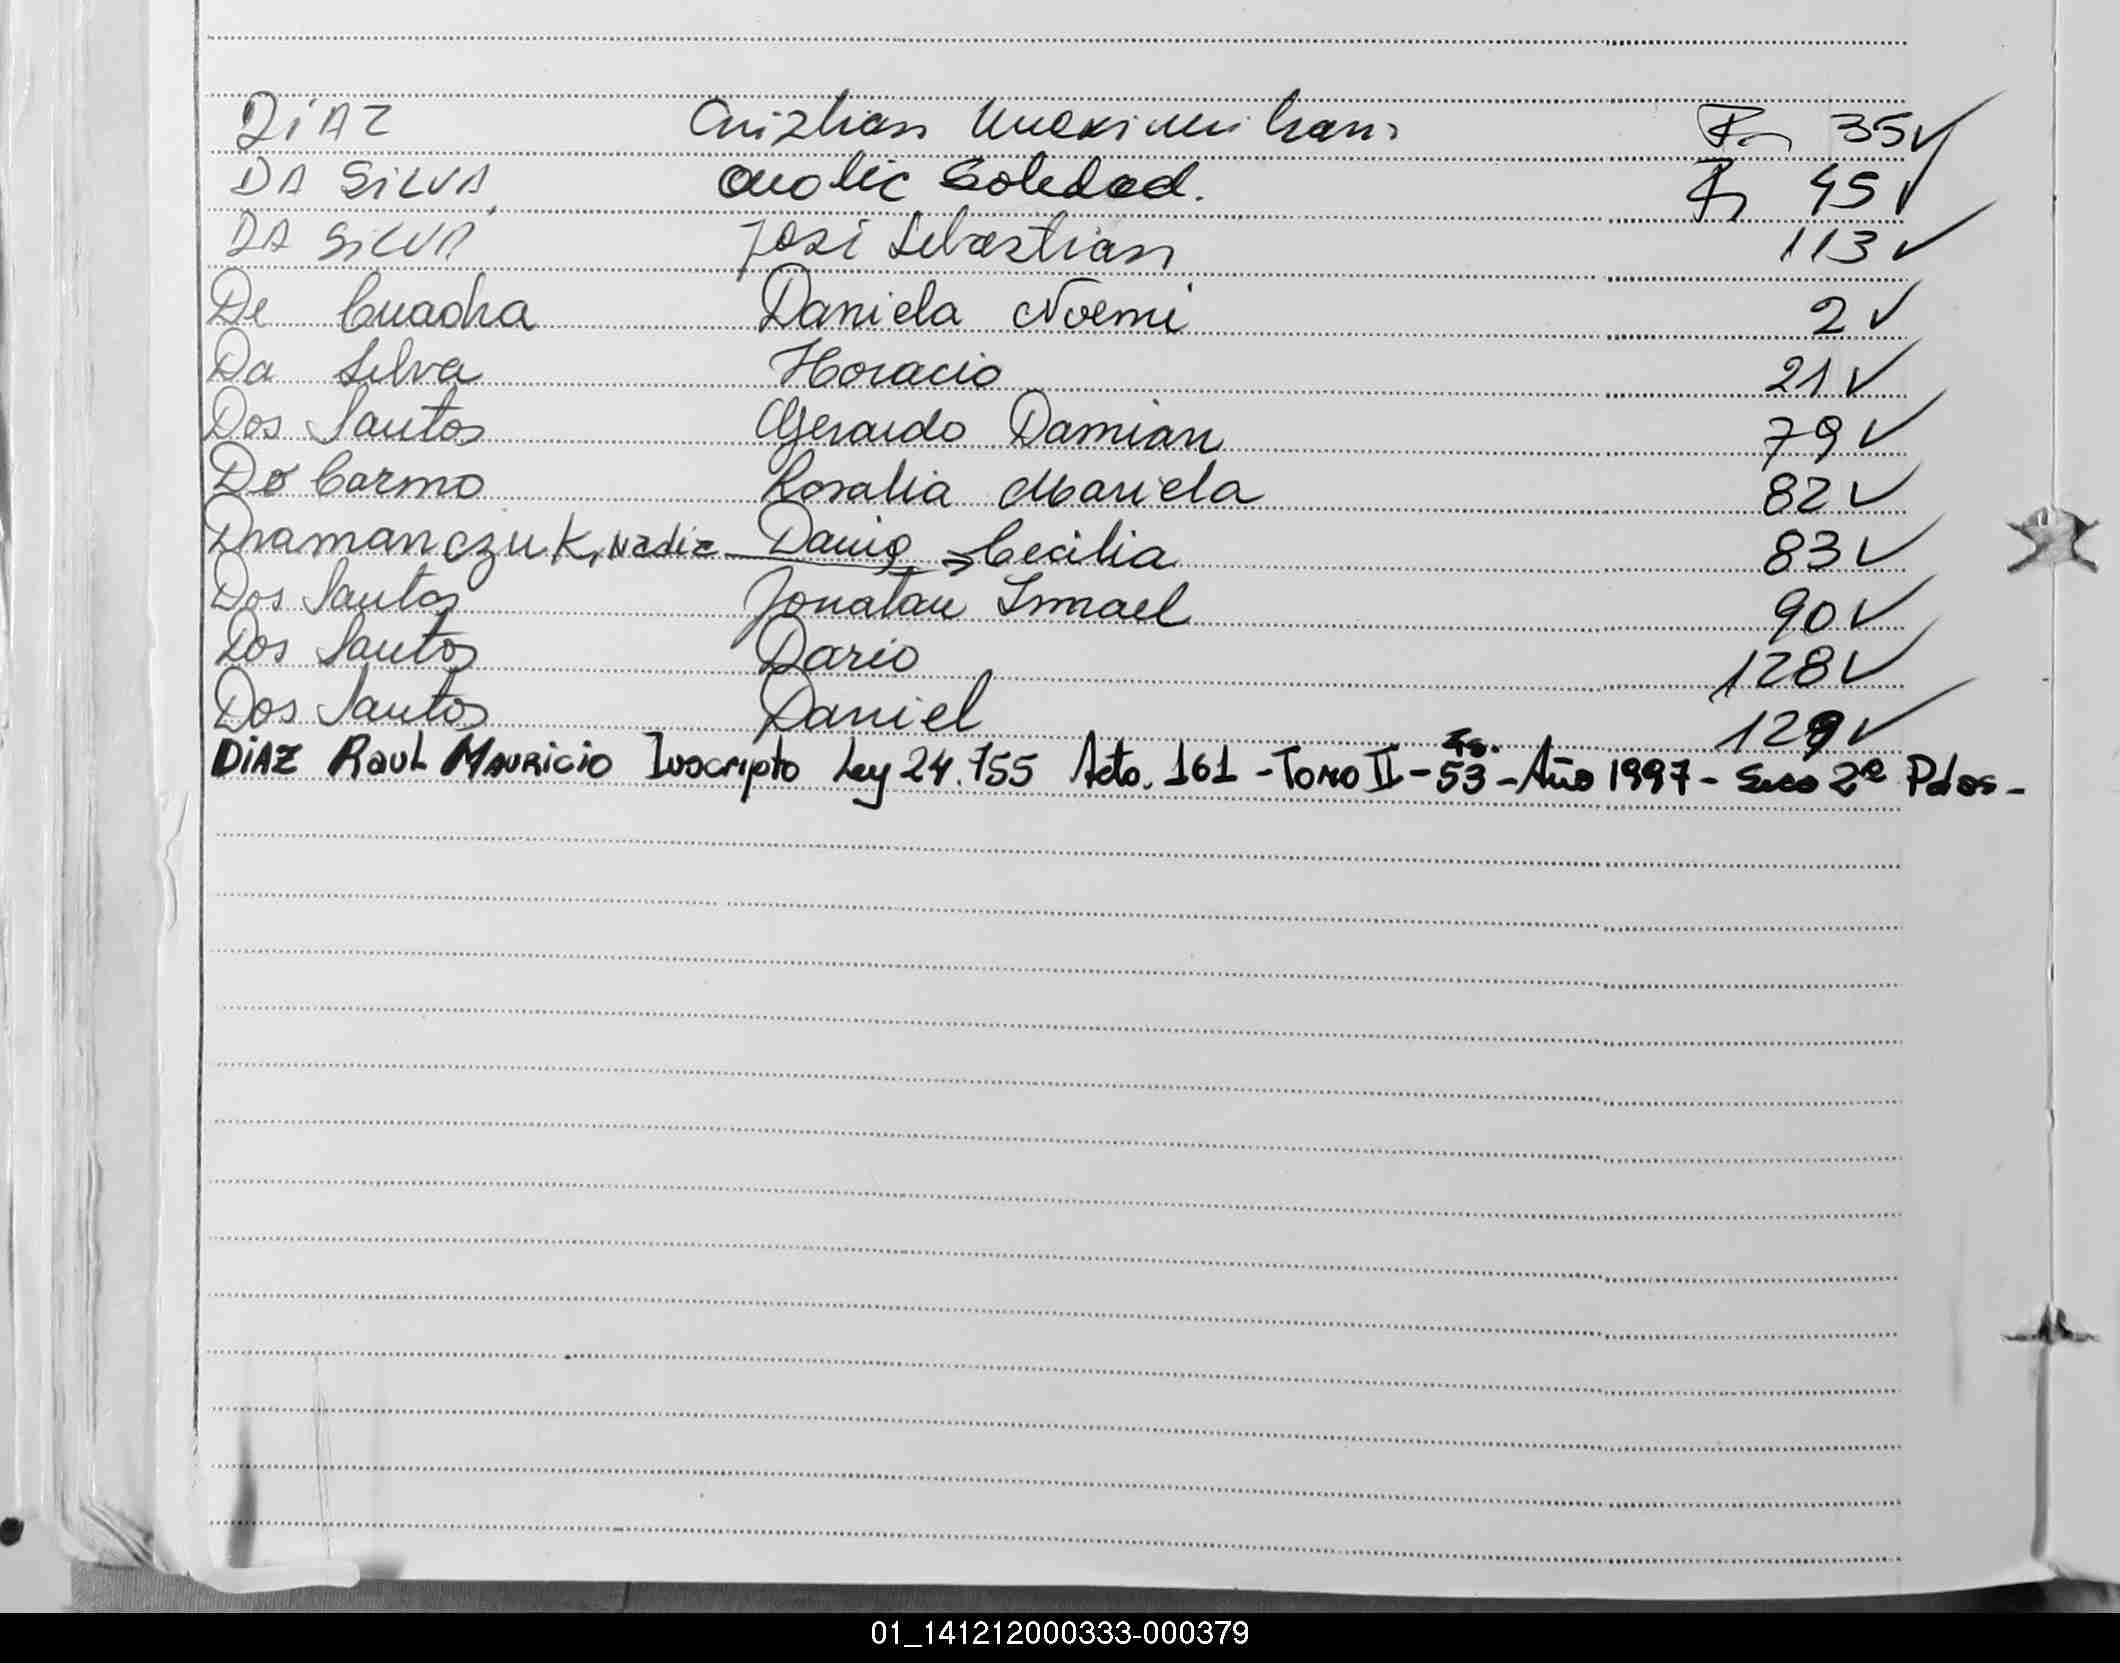 DiAZ Cristian Maximiliano 35✓
DA SiLVA, Soledad. 45✓
DA SiLVA José Sebastian 113✓
De Cuadra Daniela Noemi 2✓
Da Silva Horacio 21✓
Dos Santos Gerardo Damian 79✓
Do Carmo Rosalia Mariela 82✓
Dramanczuk, Nadia Cecilia 83✓
Dos Santos Jonatan Ismael 90✓
Dos Santos Dario 128✓
Dos Santos Daniel 129✓
DiAZ Raul Mauricio Inscripto Ley 24.755 Acto. 161 - Tomo II - Fs. 53 - Año 1997 - 2º Pdos -
01_141212000333-000379